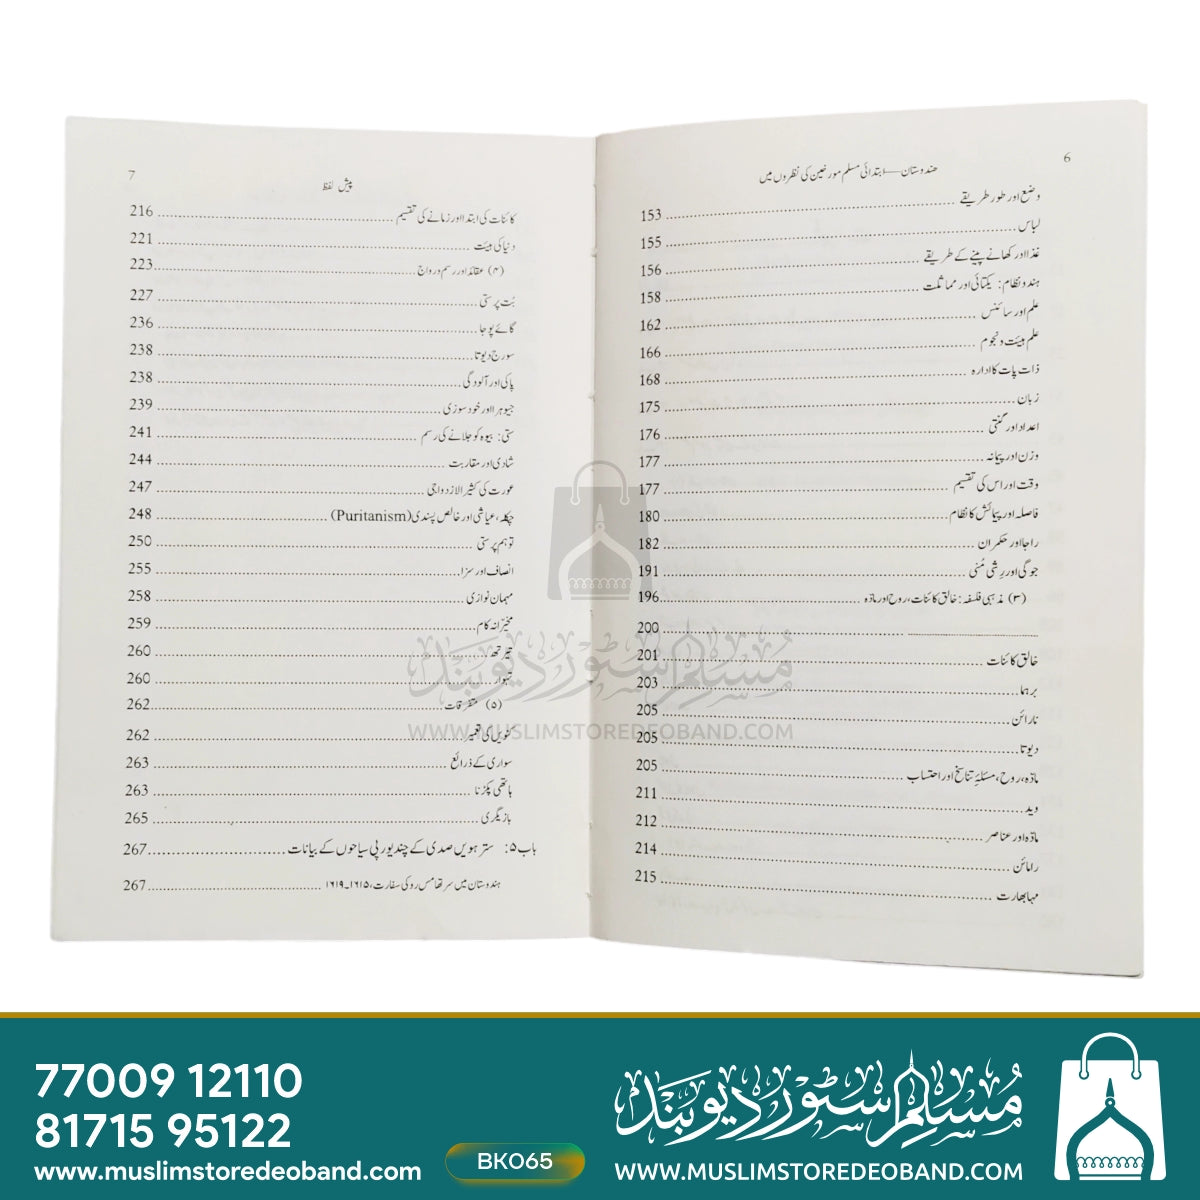 6
ہندوستان—ابتدائی مسلم مورخین کی نظروں میں
وضع اور طور طریقے ........ 153
لباس ........ 155
غذا اور کھانے پینے کے طریقے ........ 156
ہندو نظام: یکتائی اور مماثلت ........ 158
علم اور سائنس ........ 162
علم ہیئت و نجوم ........ 166
ذات پات کا ادارہ ........ 168
زبان ........ 175
اعداد اور گنتی ........ 176
وزن اور پیمانہ ........ 177
وقت اور اس کی تقسیم ........ 177
فاصلہ اور پیمائش کا نظام ........ 180
راجا اور حکمران ........ 182
جوگی اور رِشی مُنی ........ 191
(۳) مذہبی فلسفہ: خالق کائنات، روح اور مادّہ ........ 196
........ 200
خالق کائنات ........ 201
برہما ........ 203
نارائن ........ 205
دیوتا ........ 205
مادّہ، روح، مسئلۂ تناسخ اور احتساب ........ 205
وید ........ 211
مادّہ اور عناصر ........ 212
رامائن ........ 214
مہابھارت ........ 215
7
پیش لفظ
کائنات کی ابتدا اور زمانے کی تقسیم ........ 216
دنیا کی ہیئت ........ 221
(۴) عقائد اور رسم و رواج ........ 223
بُت پرستی ........ 227
گائے پوجا ........ 236
سورج دیوتا ........ 238
پاکی اور آلودگی ........ 238
جیوہر اور خود سوزی ........ 239
ستی: بیوہ کو جلانے کی رسم ........ 241
شادی اور مقاربت ........ 244
عورت کی کثیر الازدواجی ........ 247
چکلہ، عیاشی اور خالص پسندی (Puritanism) ........ 248
توہم پرستی ........ 250
انصاف اور سزا ........ 255
مہمان نوازی ........ 258
مخیرانہ کام ........ 259
تیرتھ ........ 260
تہوار ........ 260
(۵) متفرقات ........ 262
ٹویل کی تعمیر ........ 262
سواری کے ذرائع ........ 263
ہاتھی پکڑنا ........ 263
بازیگری ........ 265
باب ۵: سترہویں صدی کے چند یورپی سیاحوں کے بیانات ........ 267
ہندوستان میں سر تھامس رو کی سفارت، ۱۶۱۵۔۱۶۱۹ ........ 267
مسلم سٹور دیوبند
WWW.MUSLIMSTOREDEOBAND.COM
77009 12110
81715 95122
www.muslimstoredeoband.com
BK065
مسلم سٹور دیوبند
WWW.MUSLIMSTOREDEOBAND.COM